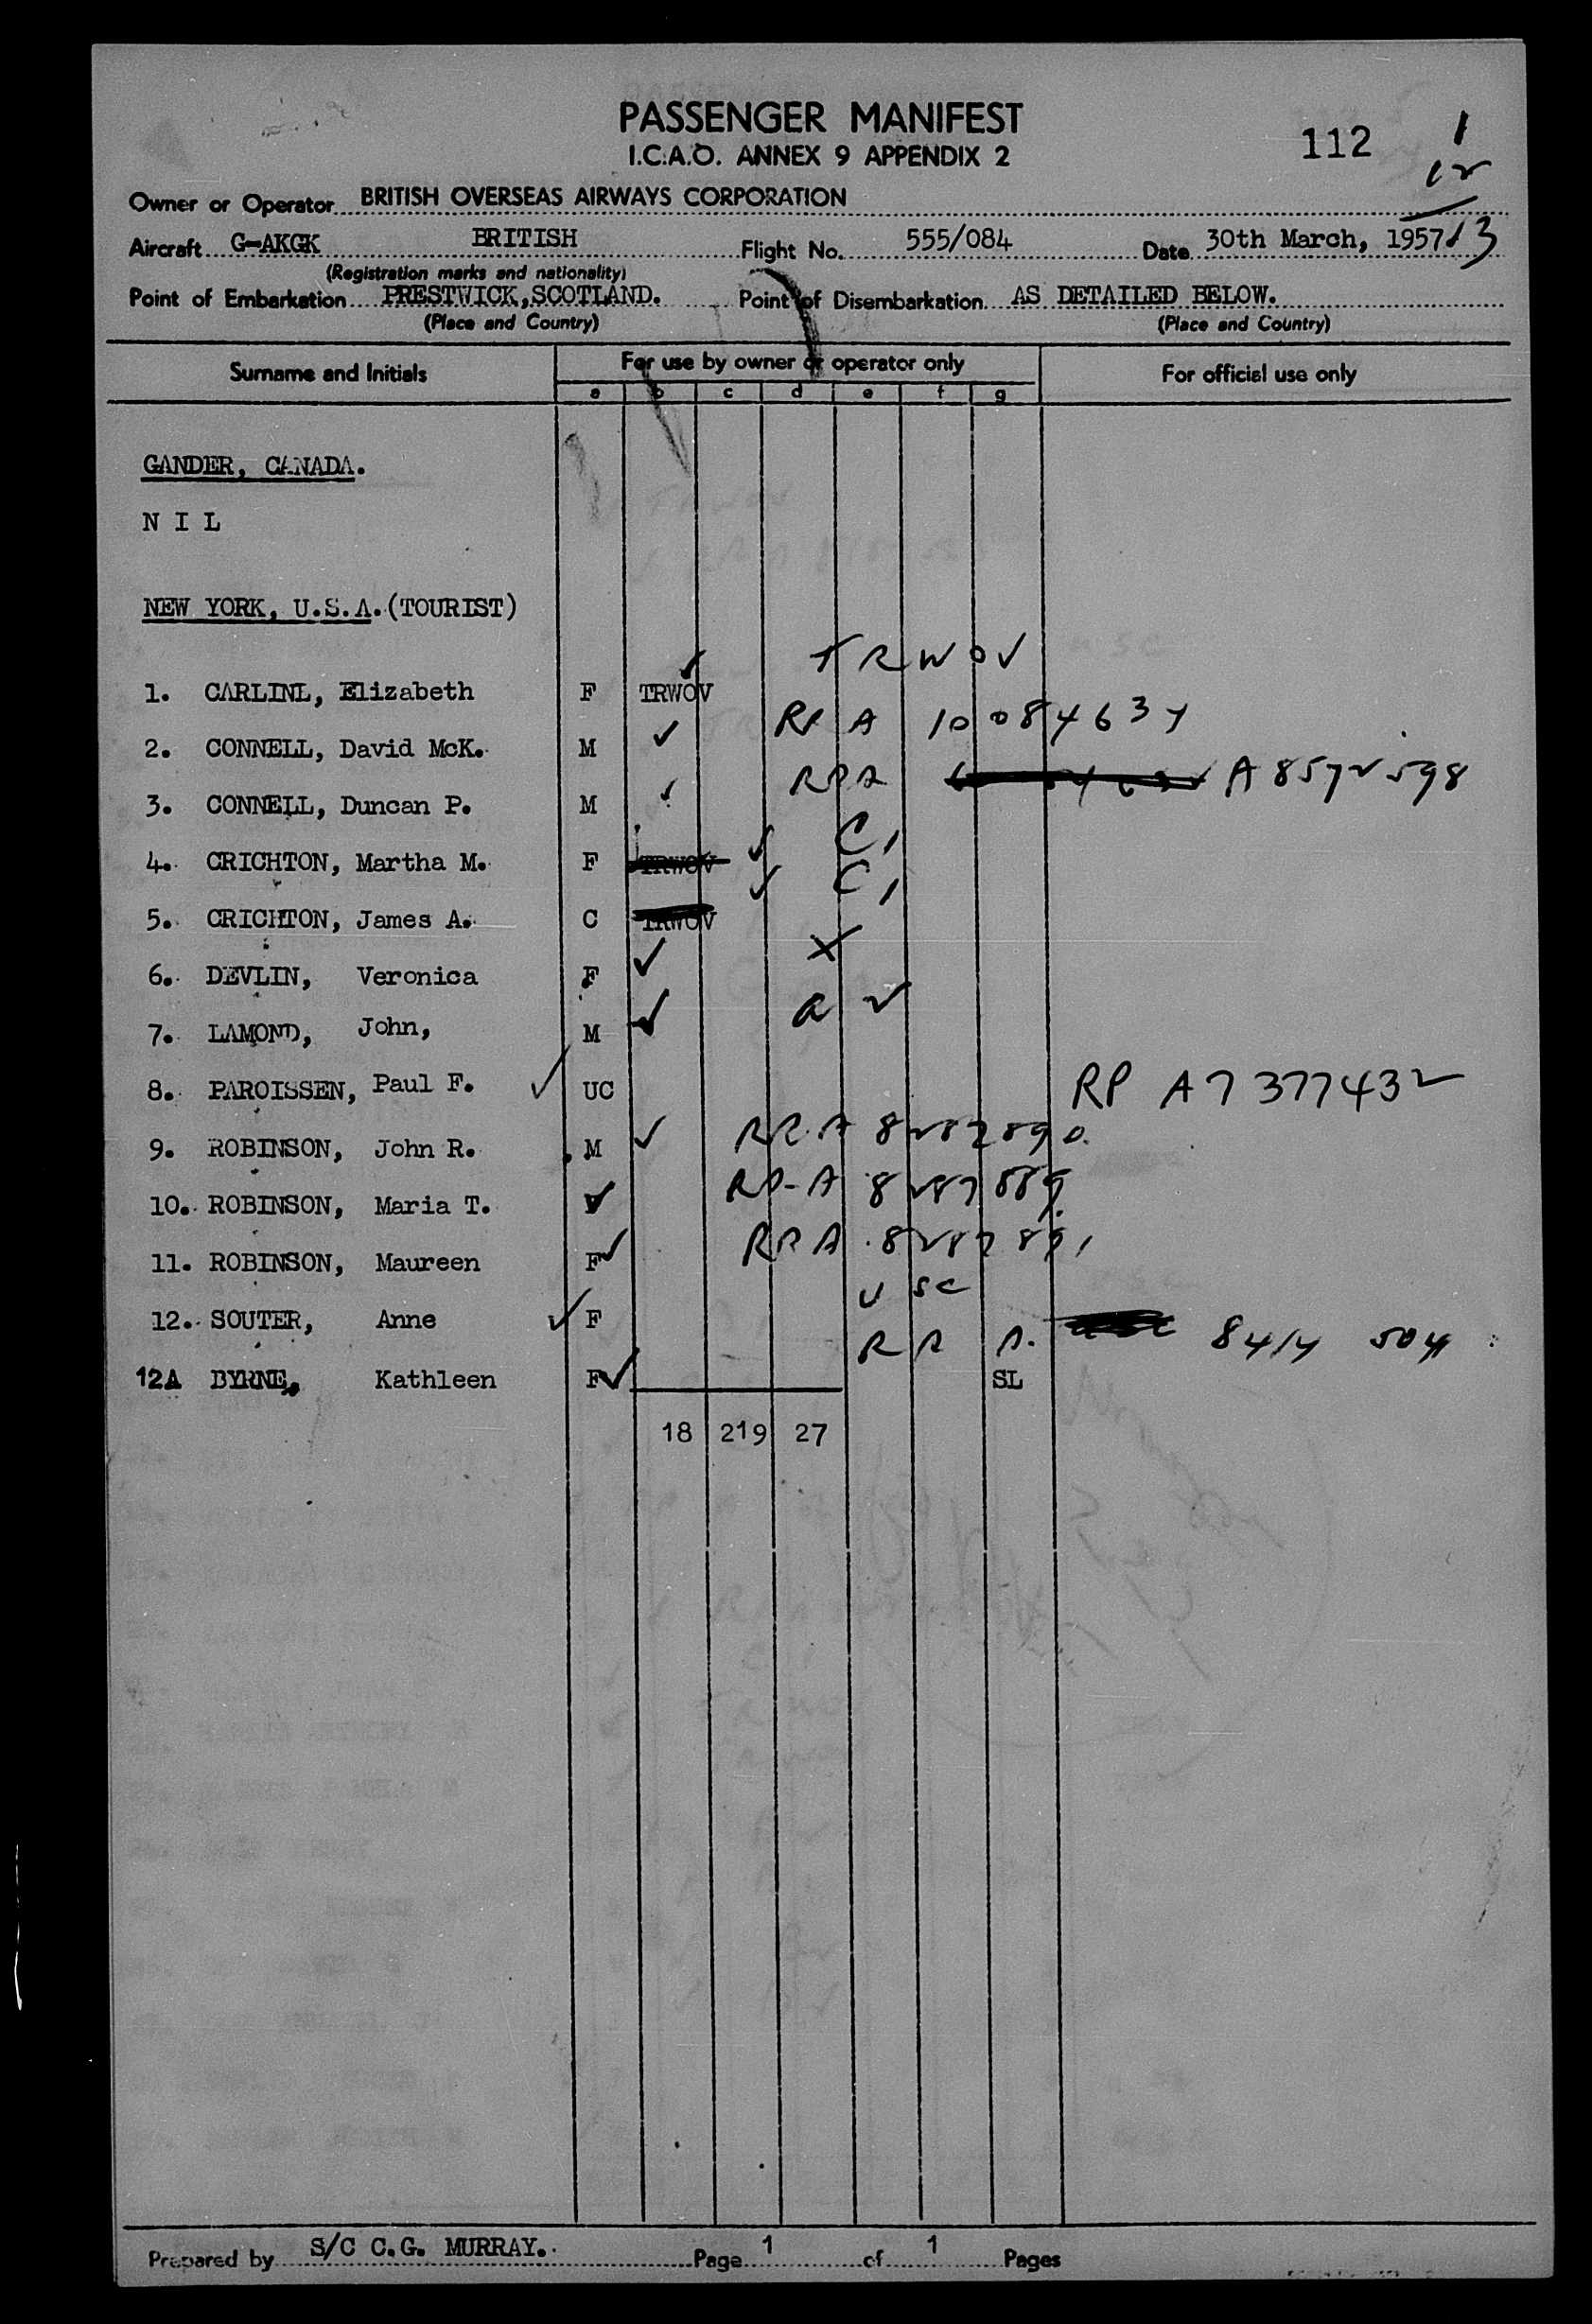 PASSENGER MANIFEST
I.C.A.O. ANNEX 9 APPENDIX 2
112 1
12
13
Owner or Operator BRITISH OVERSEAS AIRWAYS CORPORATION
Aircraft G-AKGK BRITISH Flight No. 555/084 Date 30th March, 1957
(Registration marks and nationality)
Point of Embarkation PRESTWICK, SCOTLAND. Point of Disembarkation AS DETAILED BELOW.
(Place and Country) (Place and Country)
Surname and Initials For use by owner or operator only For official use only
a b c d e f g
GANDER, CANADA.
N I L
NEW YORK, U.S.A. (TOURIST)
TRWOV
1. CARLINI, Elizabeth F TRWOV
RP A
2. CONNELL, David McK. M
RPA A 8572598
3. CONNELL, Duncan P. M
C1
4. CRICHTON, Martha M. F TRWOV
C1
5. CRICHTON, James A. C TRWOV
X
6. DEVLIN, Veronica F
7. LAMOND, John, M
8. PAROISSEN, Paul F. UC RP A7377432
RP A 8287890
9. ROBINSON, John R. M
RP-A 8287889
10. ROBINSON, Maria T.
RPA 8287891
11. ROBINSON, Maureen F
USC
12. SOUTER, Anne F
12A BYRNE, Kathleen F SL
18 219 27
Prepared by S/C C.G. MURRAY. Page 1 of 1 Pages